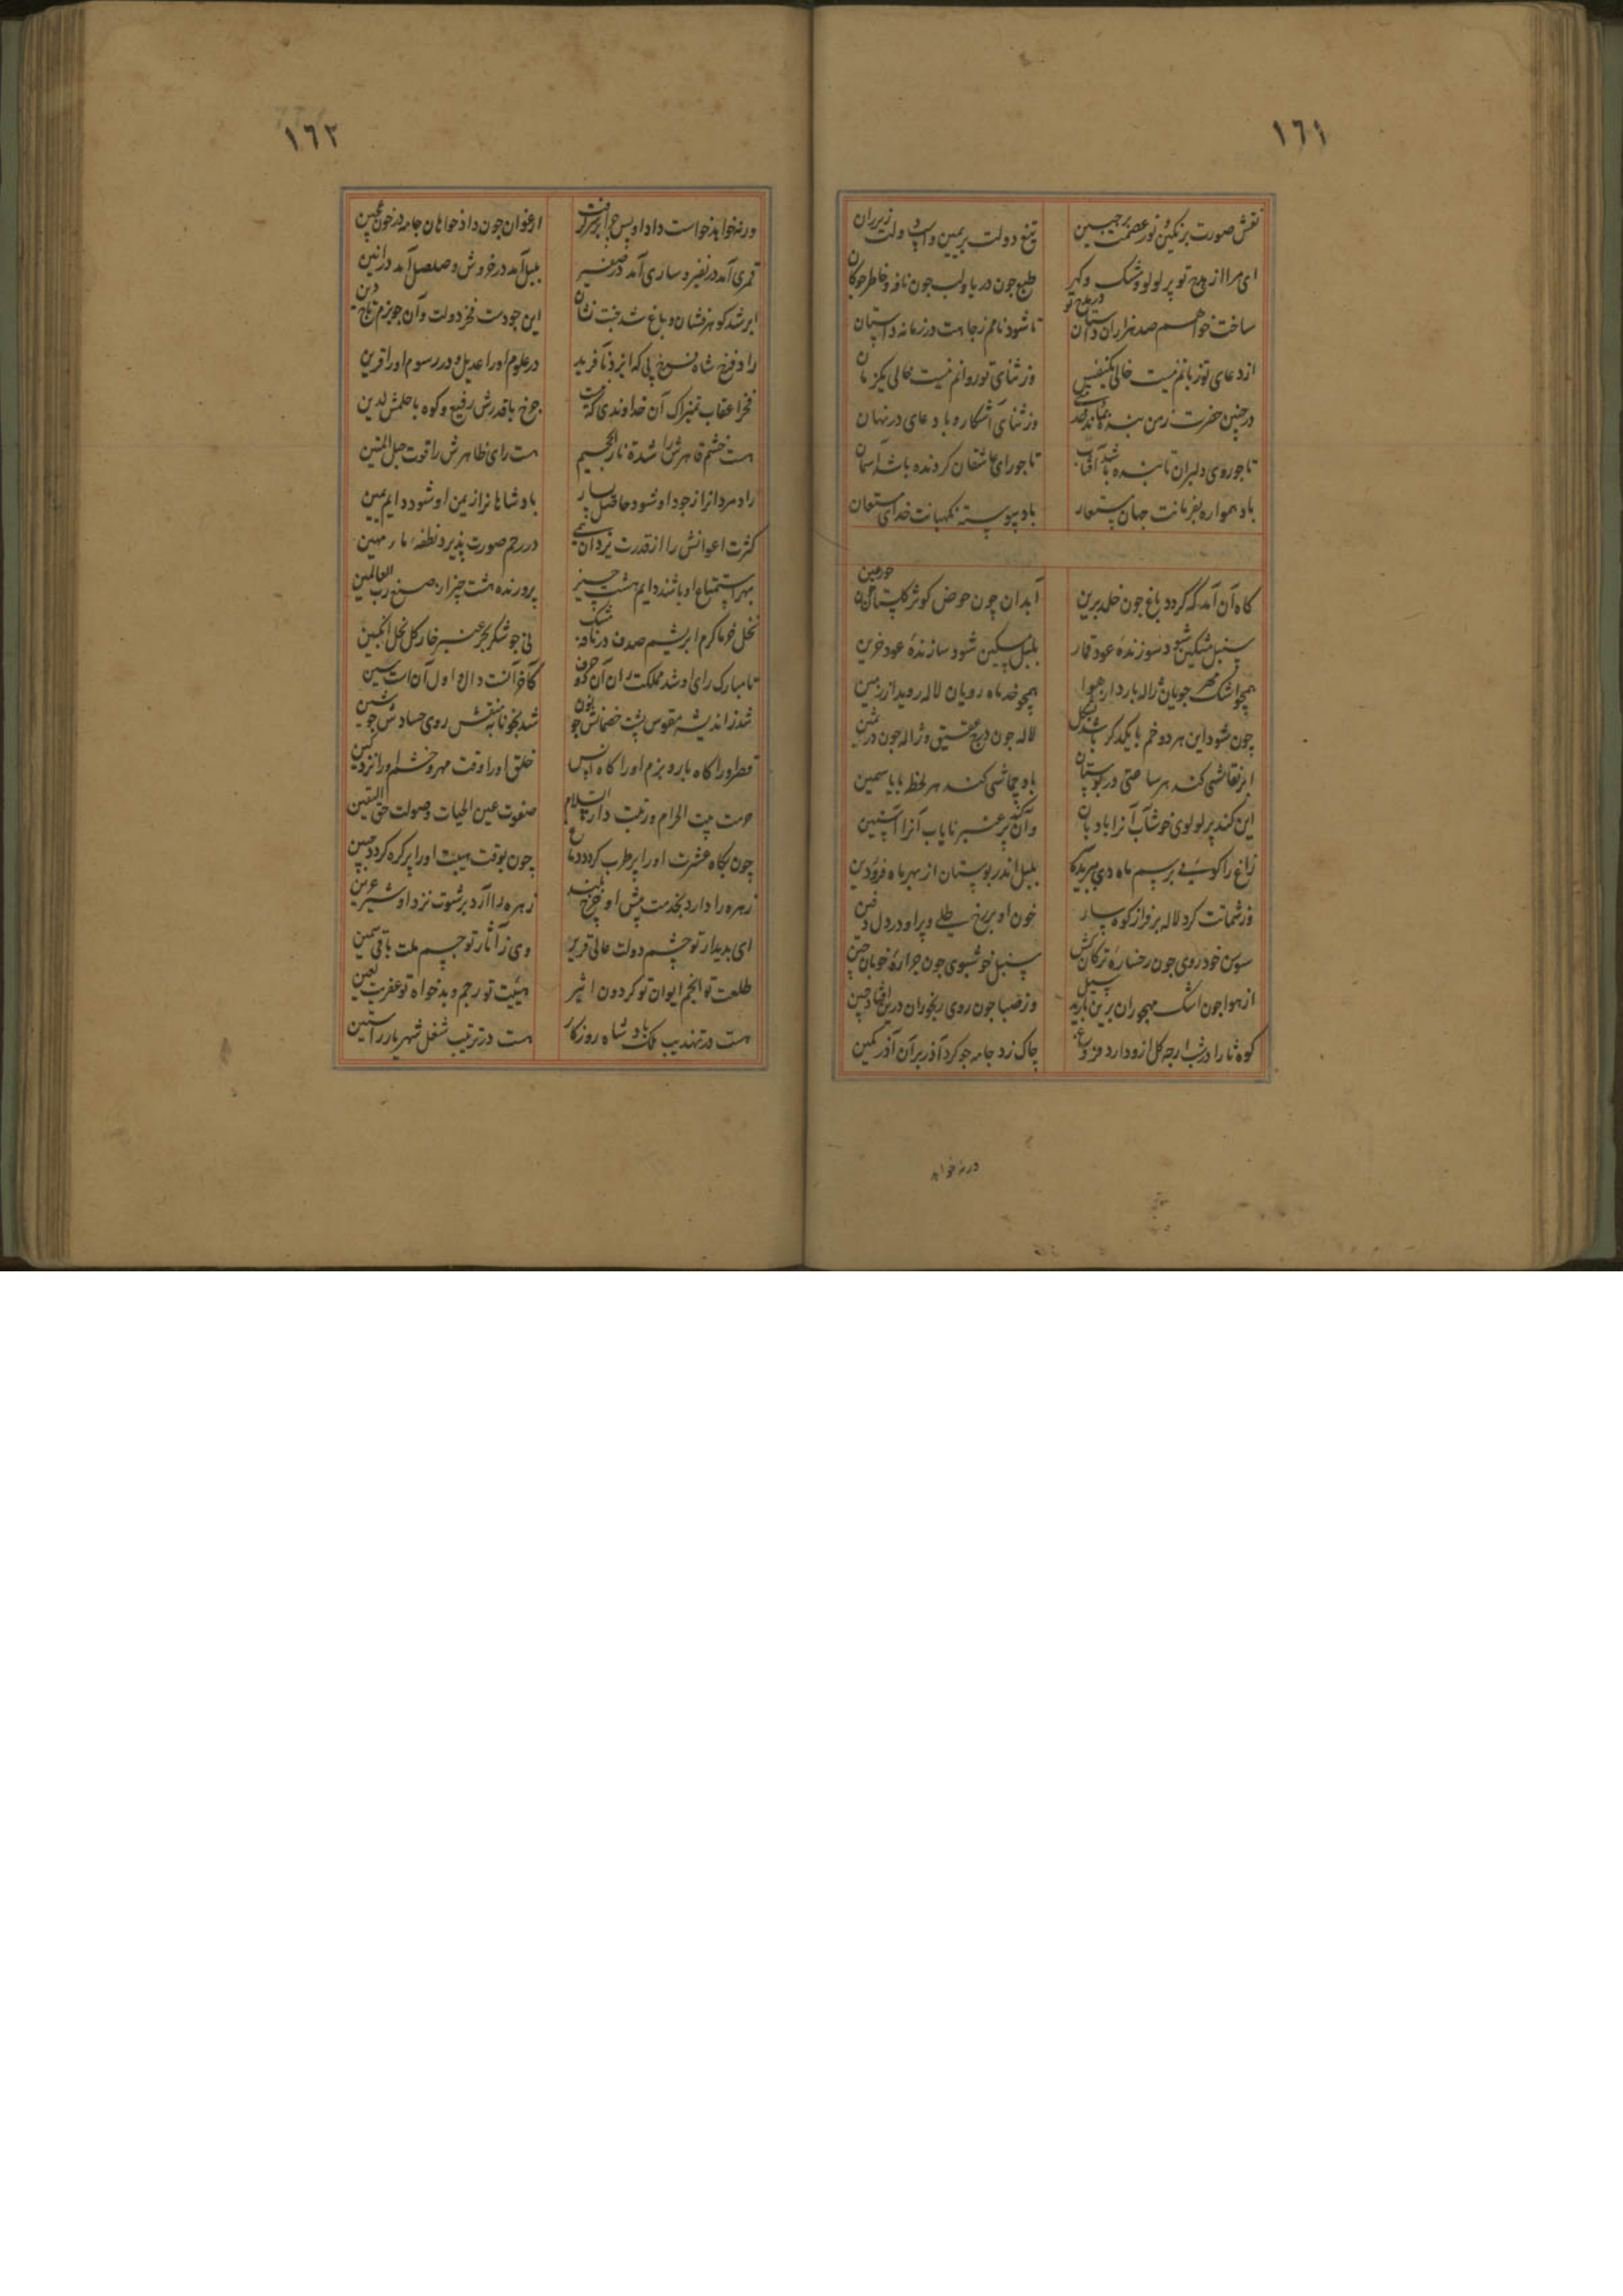 ١٦١
نقش صورت بر نگین و نور عصمت بر جبین تیغ دولت بر یمین و اسپ دولت زیر ران
ای مرا از مدح تو پر لولو و مشک و گهر طبع چون دریا و لب چون نافه و خاطر چو کان
ساخت خواهم صد هزاران داستان در مدح تو تا شود نامم ز جاهت در زمانه داستان
از دعای تو زبانم نیست خالی یکنفس وز ثنای تو روانم نیست خالی یکزمان
در چنین حضرت ز من بنده وز ثنای آشکارو با دعای در نهان
تا چو روی دلبران تابنده باشد آفتاب تا چو رای عاشقان کردنده باشد آسمان
باد همواره بفرمانت جهان مستعار باد پیوسته نگهبانت خدای مستعان
گاه آن آمد که گردد باغ چون خلد برین آبدان چون حوض کوثر گلستان چون حور عین
سنبل مشکین شود سوزندهٔ عود قمار بلبل مسکین شود سازندهٔ عود حزین
همچو اشک مهر جویان ژاله بارد از هوا همچو خد ماه رویان لاله روید از زمین
چون شود این هر دو خم با یکدگر باشد بشکل لاله چون درج عقیق و ژاله چون در ثمین
ابر نقاشی کند هر ساعتی در بوستان باد چماشی کند هر لحظه با یاسمین
این کند پر لولوی خوشاب آنرا بادبان وان کند پر عنبر نایاب آنرا آستین
زاغ را کوئی برسم ماه دی بلبل اندر بوستان از بهر ماه فرودین
وز شماتت کرد لاله بر فراز کوهسار خون او بر رخ طلی و پر او در دل دفین
سوسن خودروی چون رخسارهٔ ترکان سنبل خوشبوی چون جرارهٔ خوبان چین
از هوا چون اشک مهجوران برین بارید سیل وز صبا چون روی رنجوران دران افتاد چین
چاک زد جامه چو کرد آذر بر آن آذر کمین
ورنه خواهد
١٦٢
ورنه خواهد خواست داد او پس چرا بر سر گرفت ارغوان چون داد خواهان جامه در خون عجین
قمری آمد در نفیر و ساری آمد در صفیر بلبل آمد در خروش و صلصل آمد در انین
ابر شد گوهر فشان و باغ شد جنت نشان این چو دست فخر دولت وآن چو بزم تاج دین
راد فرخ شاه فرخ پی که ایزد نافرید در علوم او را عدیل و در رسوم او را قرین
فخر اعقاب تمیراک آن خداوندی که هست چرخ با قدرش رفیع و کوه با حلمش لدین
هست خشم قاهرش را شدة نار الجحیم هست رای ظاهرش را قوت حبل المتین
راد مردانرا از جود او شود حاصل یسار پادشاهانرا ز یمن او شود دایم یمین
کثرت اعوانش را از قدرت یزدان همی در رحم صورت پذیرد نطفهٔ ماء مهین
بهر استمتاع او باشند دایم هشت چیز پرورنده هشت چیز از صنع رب العالمین
نخل خرما کرم ابریشم صدف در نافه مشک نی چو شکر بحر عنبر خار گل نحل انگبین
تا مبارک رای او شد مملکت را
شد ز اندیشه مقوس پشت خصمانش چو نون شد بخونابه منقش روی حسادش چو شین
خلق او را وقت مهر و خشم او را نزد کین
حرمت بیت الحرام و زینت دار السلام صفوت عین الحیات و صولت حق الیقین
چون بگاه عشرت او را پر طرب گردد دماغ چون بوقت هیبت او را پر کره گردد جبین
زهره را دارد بخدمت پیش او چرخ بلند زهره را آرد برشوت نزد او شیر عرین
ای بدیدار تو چشم دولت عالی قریر وی ز آثار تو جسم ملت باقی سمین
طلعت تو انجم ایوان تو گردون اثیر هیبت تو رجم و بدخواه تو عفریت لعین
هست در تهذیب ملک پادشاه روزگار هست در ترتیب شغل شهریار راستین